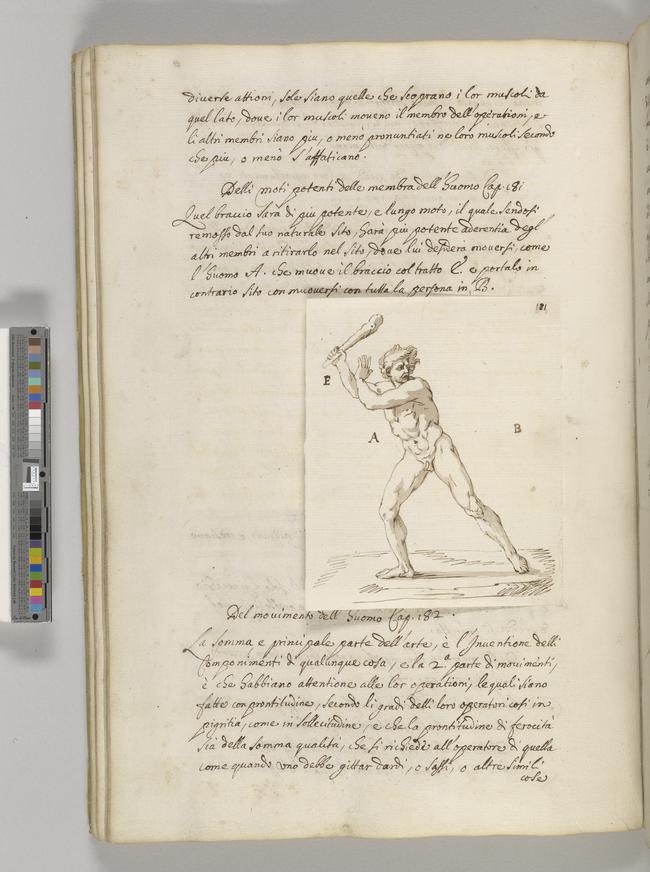 diverse attioni, sole siano quelle che scoprano i lor muscoli da
quel lato, dove i lor muscoli moveno il membro dell'operationi, e
li altri membri siano piu, o meno pronuntiati ne loro muscoli secondo
che piu, o meno s'affaticano.
Delli moti potenti delle membra dell'huomo Cap. 181
Quel braccio sarà di piu potente, e lungo moto, il quale sendosi
remosso dal suo naturale sito, harà più potente aderentia degl'
altri membri a ritirarlo nel sito, dove lui desidera moversi, come
l'huomo A. che muove il braccio col tratto E. e portalo in
contrario sito con muoversi con tutta la persona in B.
181
E
A
B
Del movimento dell'huomo Cap. 182.
La somma e principale parte dell'arte, è l'Inventione delli
Componimenti di qualunque cosa, e la 2.a parte di movimenti,
è che habbiano attentione alle lor operationi, le quali siano
fatte con prontitudine, secondo li gradi delli loro operatori cosi in
pigritia, come in sollecitudine, e che la prontitudine di ferocità
sia della somma qualità, che si richiede all'operatore di quella
come quando uno debbe gittar dardi, o sassi, o altre simili
cose